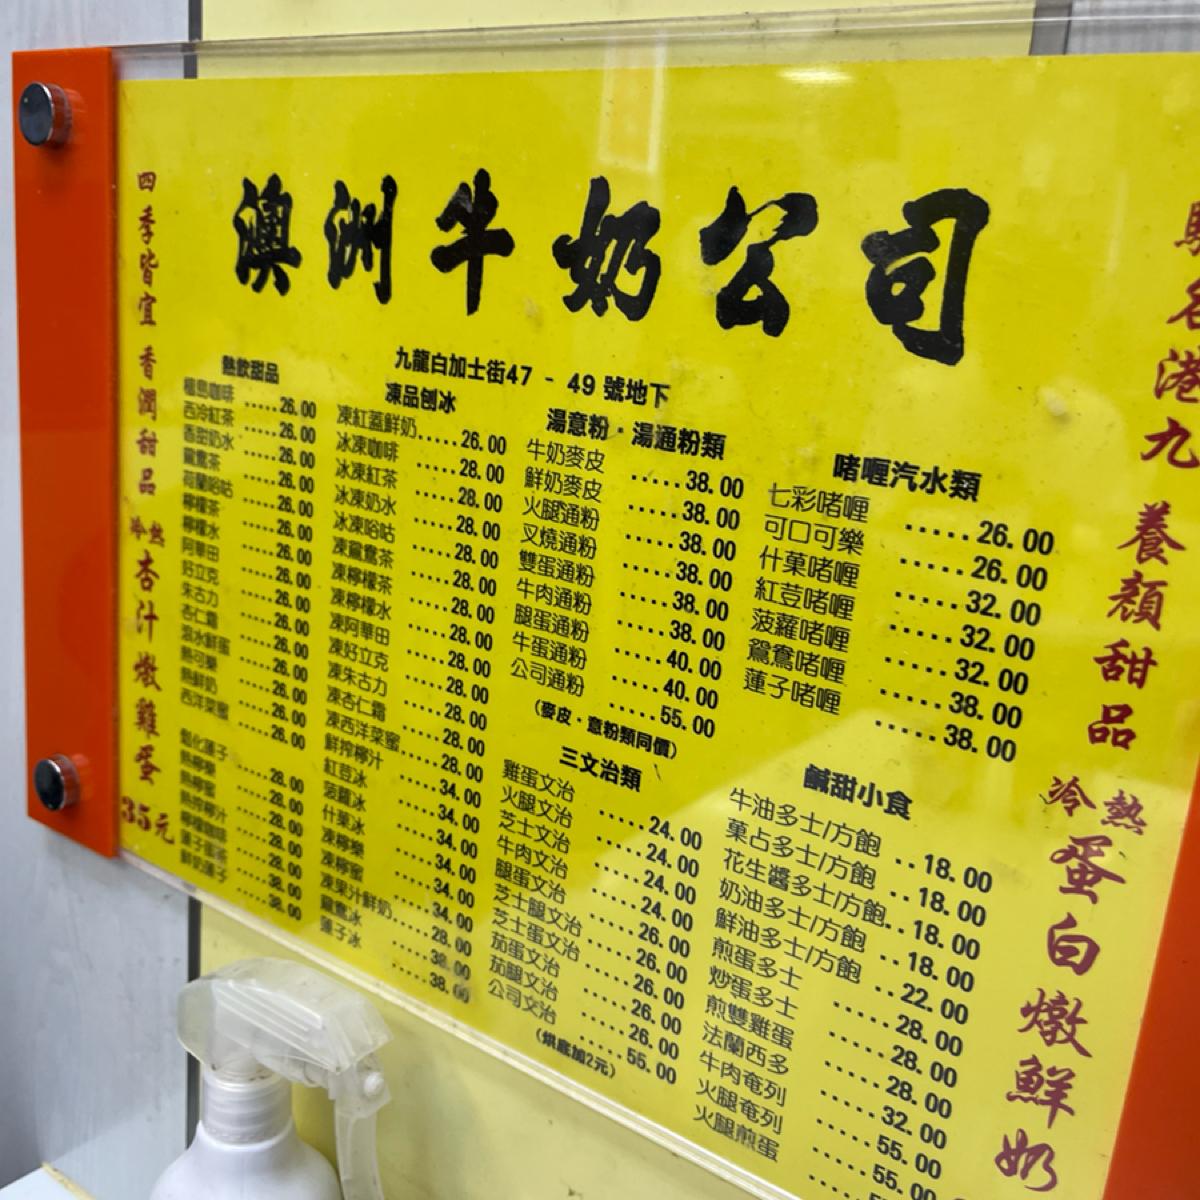 澳洲牛奶公司
九龍白加士街47 - 49 號地下
四季皆宜 香潤甜品
冷熱 杏汁燉雞蛋
35元
熱飲甜品
檀島咖啡 .....26.00
西冷紅茶 .....26.00
香甜奶水 .....26.00
鴛鴦茶 .....26.00
荷蘭哈咕 .....26.00
檸檬茶 .....26.00
檸檬水 .....26.00
阿華田 .....26.00
好立克 .....26.00
朱古力 .....26.00
杏仁霜 .....26.00
滾水鮮蛋 .....26.00
熱可樂 .....26.00
熱鮮奶
西洋菜蜜
凍品刨冰
凍紅蓋鮮奶.....26.00
冰凍咖啡 .....28.00
冰凍紅茶 .....28.00
冰凍奶水 .....28.00
冰凍哈咕 .....28.00
凍鴛鴦茶 .....28.00
凍檸檬茶 .....28.00
凍檸檬水 .....28.00
凍阿華田 .....28.00
凍好立克 .....28.00
凍朱古力 .....28.00
凍杏仁霜 .....28.00
凍西洋菜蜜.....28.00
鮮搾檸汁 .....34.00
紅荳冰 .....34.00
菠蘿冰 .....34.00
什菓冰 .....34.00
凍檸樂
凍檸蜜
凍果汁鮮奶.....28.00
鴛鴦冰 .....38.00
蓮子冰 .....38.00
湯意粉・湯通粉類
牛奶麥皮 .....38.00
鮮奶麥皮 .....38.00
火腿通粉 .....38.00
叉燒通粉 .....38.00
雙蛋通粉 .....38.00
牛肉通粉 .....38.00
腿蛋通粉 .....40.00
牛蛋通粉 .....40.00
公司通粉 .....55.00
(麥皮・意粉類同價)
三文治類
雞蛋文治 .....24.00
火腿文治 .....24.00
芝士文治 .....24.00
牛肉文治 .....24.00
腿蛋文治 .....26.00
芝士腿文治.....26.00
芝士蛋文治.....26.00
茄蛋文治 .....26.00
茄腿文治 .....26.00
公司文治 .....55.00
(烘底加2元)
啫喱汽水類
七彩啫喱 .....26.00
可口可樂 .....26.00
什菓啫喱 .....32.00
紅荳啫喱 .....32.00
菠蘿啫喱 .....32.00
鴛鴦啫喱 .....38.00
蓮子啫喱 .....38.00
鹹甜小食
牛油多士/方飽 ..18.00
菓占多士/方飽 ..18.00
花生醬多士/方飽..18.00
奶油多士/方飽 ..18.00
鮮油多士/方飽 ..22.00
煎蛋多士 .....28.00
炒蛋多士 .....28.00
煎雙雞蛋 .....28.00
法蘭西多 .....32.00
牛肉奄列 .....55.00
火腿奄列 .....55.00
火腿煎蛋
名港九 養顏甜品
冷熱 蛋白燉鮮奶